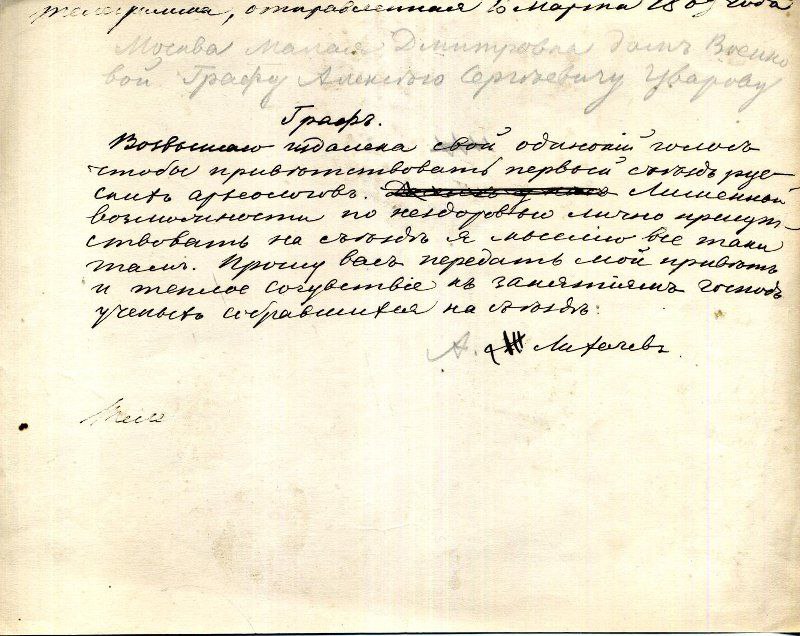 телеграмма, отправленная 16 Марта 1869 года
Москва Малая Дмитровка домъ Воейко
вой Графу Алексѣю Сергѣевичу Уварову
Графъ.
Возвышаю издалека свой одинокій голосъ
чтобы привѣтствовать первый съѣздъ рус
скихъ археологовъ. Лишенный
возможности по нездоровью лично присут-
ствовать на съѣздѣ я мысленно все таки
тамъ. Прошу васъ передать мой привѣтъ
и теплое сочувствіе къ занятіямъ господъ
ученыхъ собравшихся на съѣздъ.
А. Лихачевъ
Теле